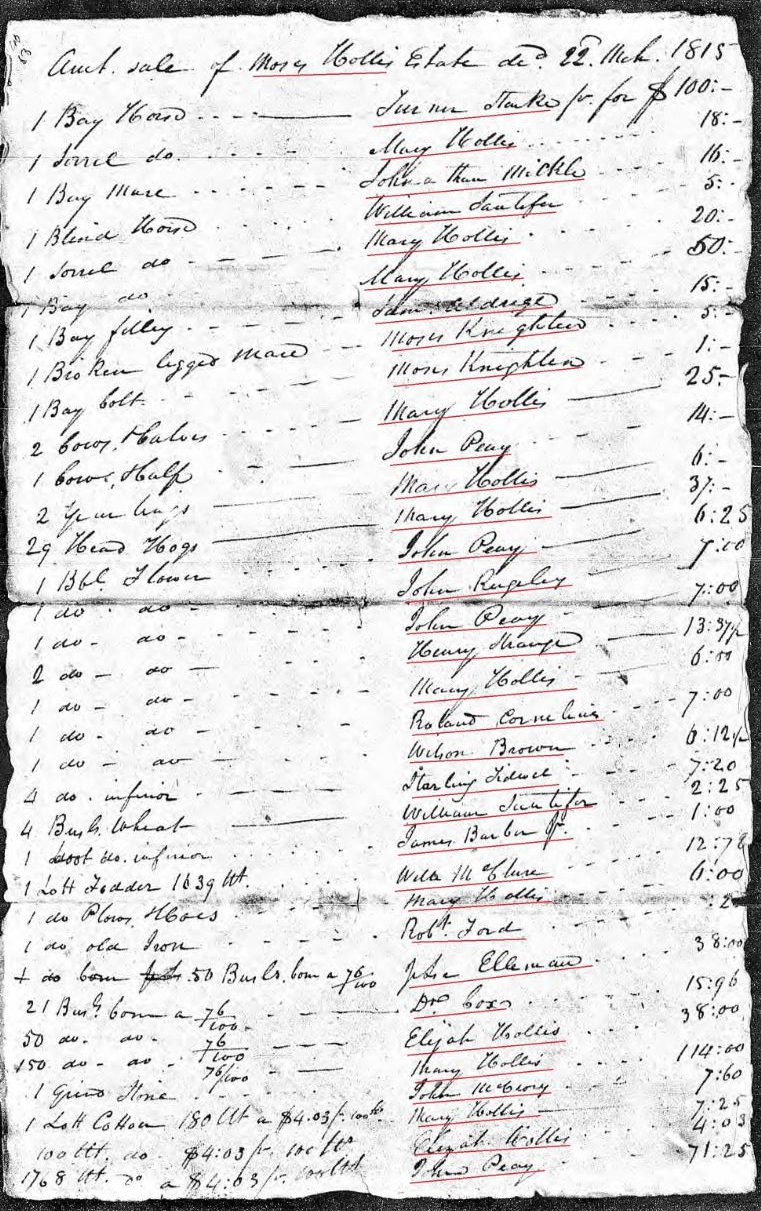 Amt. sale of Moses Hollis Estate decd. 22d. Mch. 1815
1 Bay Horse Turner Starke jr. for $100:-
1 Sorrel do. Mary Hollis 18:-
1 Bay Mare Johnathan Mickle 16:-
1 Blind Horse William Santifer 5:-
1 Sorrel do Mary Hollis 20:-
1 Bay do Mary Hollis 50:-
1 Bay filley Sam. Aldrige 15:-
1 Broken legged Mare Moses Knighten 5:-
1 Bay Colt Moses Knighten 1:-
2 Cows & Calves Mary Hollis 25:-
1 Cow & Calf John Peay 14:-
2 Year Mary Hollis 6:-
29 Head Hogs Mary Hollis 37:-
1 Bbl. Flower John Peay 6:25
1 do do John Rugeley 7:00
1 do - do - John Peay 7:00
2 do - do - Henry Strange 13:37½
1 do - do - Mary Hollis 6:00
1 do - do - Roland Cornelius 7:00
1 do - do - Wilson Brown 6:12½
4 do. inferior Starling Tidwell 7:20
4 Bush. Wheat William Santifer 2:25
1 do. inferior James Barber Jr. 1:00
1 Lott Fodder 1639 Wt. Willm McClure 12:78
1 do Plows & Hoes Mary Hollis 6:00
1 do old Iron Robt. Ford
50 Bush. Corn a 76/100 John Elleman 38:00
21 Bush. Corn a 76/100 Dr. Coxs 15:96
50 do. do. 76/100 Elijah Hollis 38:00
150 do - do - 76/100 Mary Hollis 114:00
1 Grind Stone John McCrory 7:60
1 Lott Cotton 180 Wt a $4.03 pr. 100 Mary Hollis 7:25
100 Wt. do $4:03 pr. 100 Wt Elijah Hollis 4:03
1768 Wt. do a $4:03 pr. 100 Wt John Peay 71:25